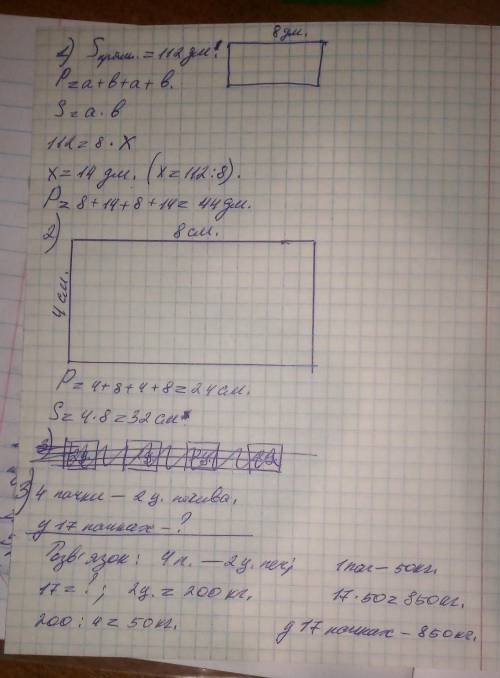 8 дм.
1) Sпрям. = 112 дм²
P = a + в + a + в.
S = a · в
112 = 8 · x
x = 14 дм. (x = 112 : 8).
P = 8 + 14 + 8 + 14 = 44 дм.
2)
8 см.
4 см.
P = 4 + 8 + 4 + 8 = 24 см.
S = 4 · 8 = 32 см²
3)
4 пачки — 2 ц.
у 17 пачках — ?
Розв'язок: 4 п. — 2 ц. печ;
17 = ?; 2 ц. = 200 кг.
200 : 4 = 50 кг.
1 пач — 50 кг.
17 · 50 = 850 кг.
у 17 пачках — 850 кг.